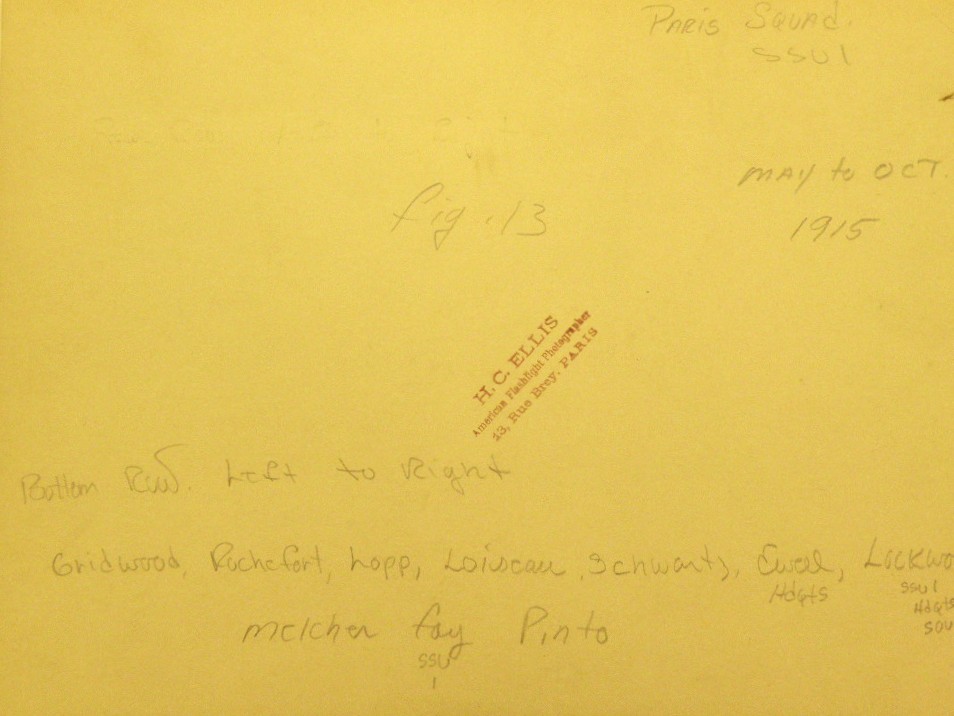 PARIS SQUAD.
SSU1
MAY to OCT.
1915
fig. 13
H. C. ELLIS
American Flashlight Photographer
13, Rue Brey, PARIS
Bottom Row. Left to Right
Gridwood, Rochefort, Lopp, Loiseau, Schwartz, Ewell, Lockwo
Hdqts
SSU1
Hdqts
SOU
Melcher Fay Pinto
SSU
1